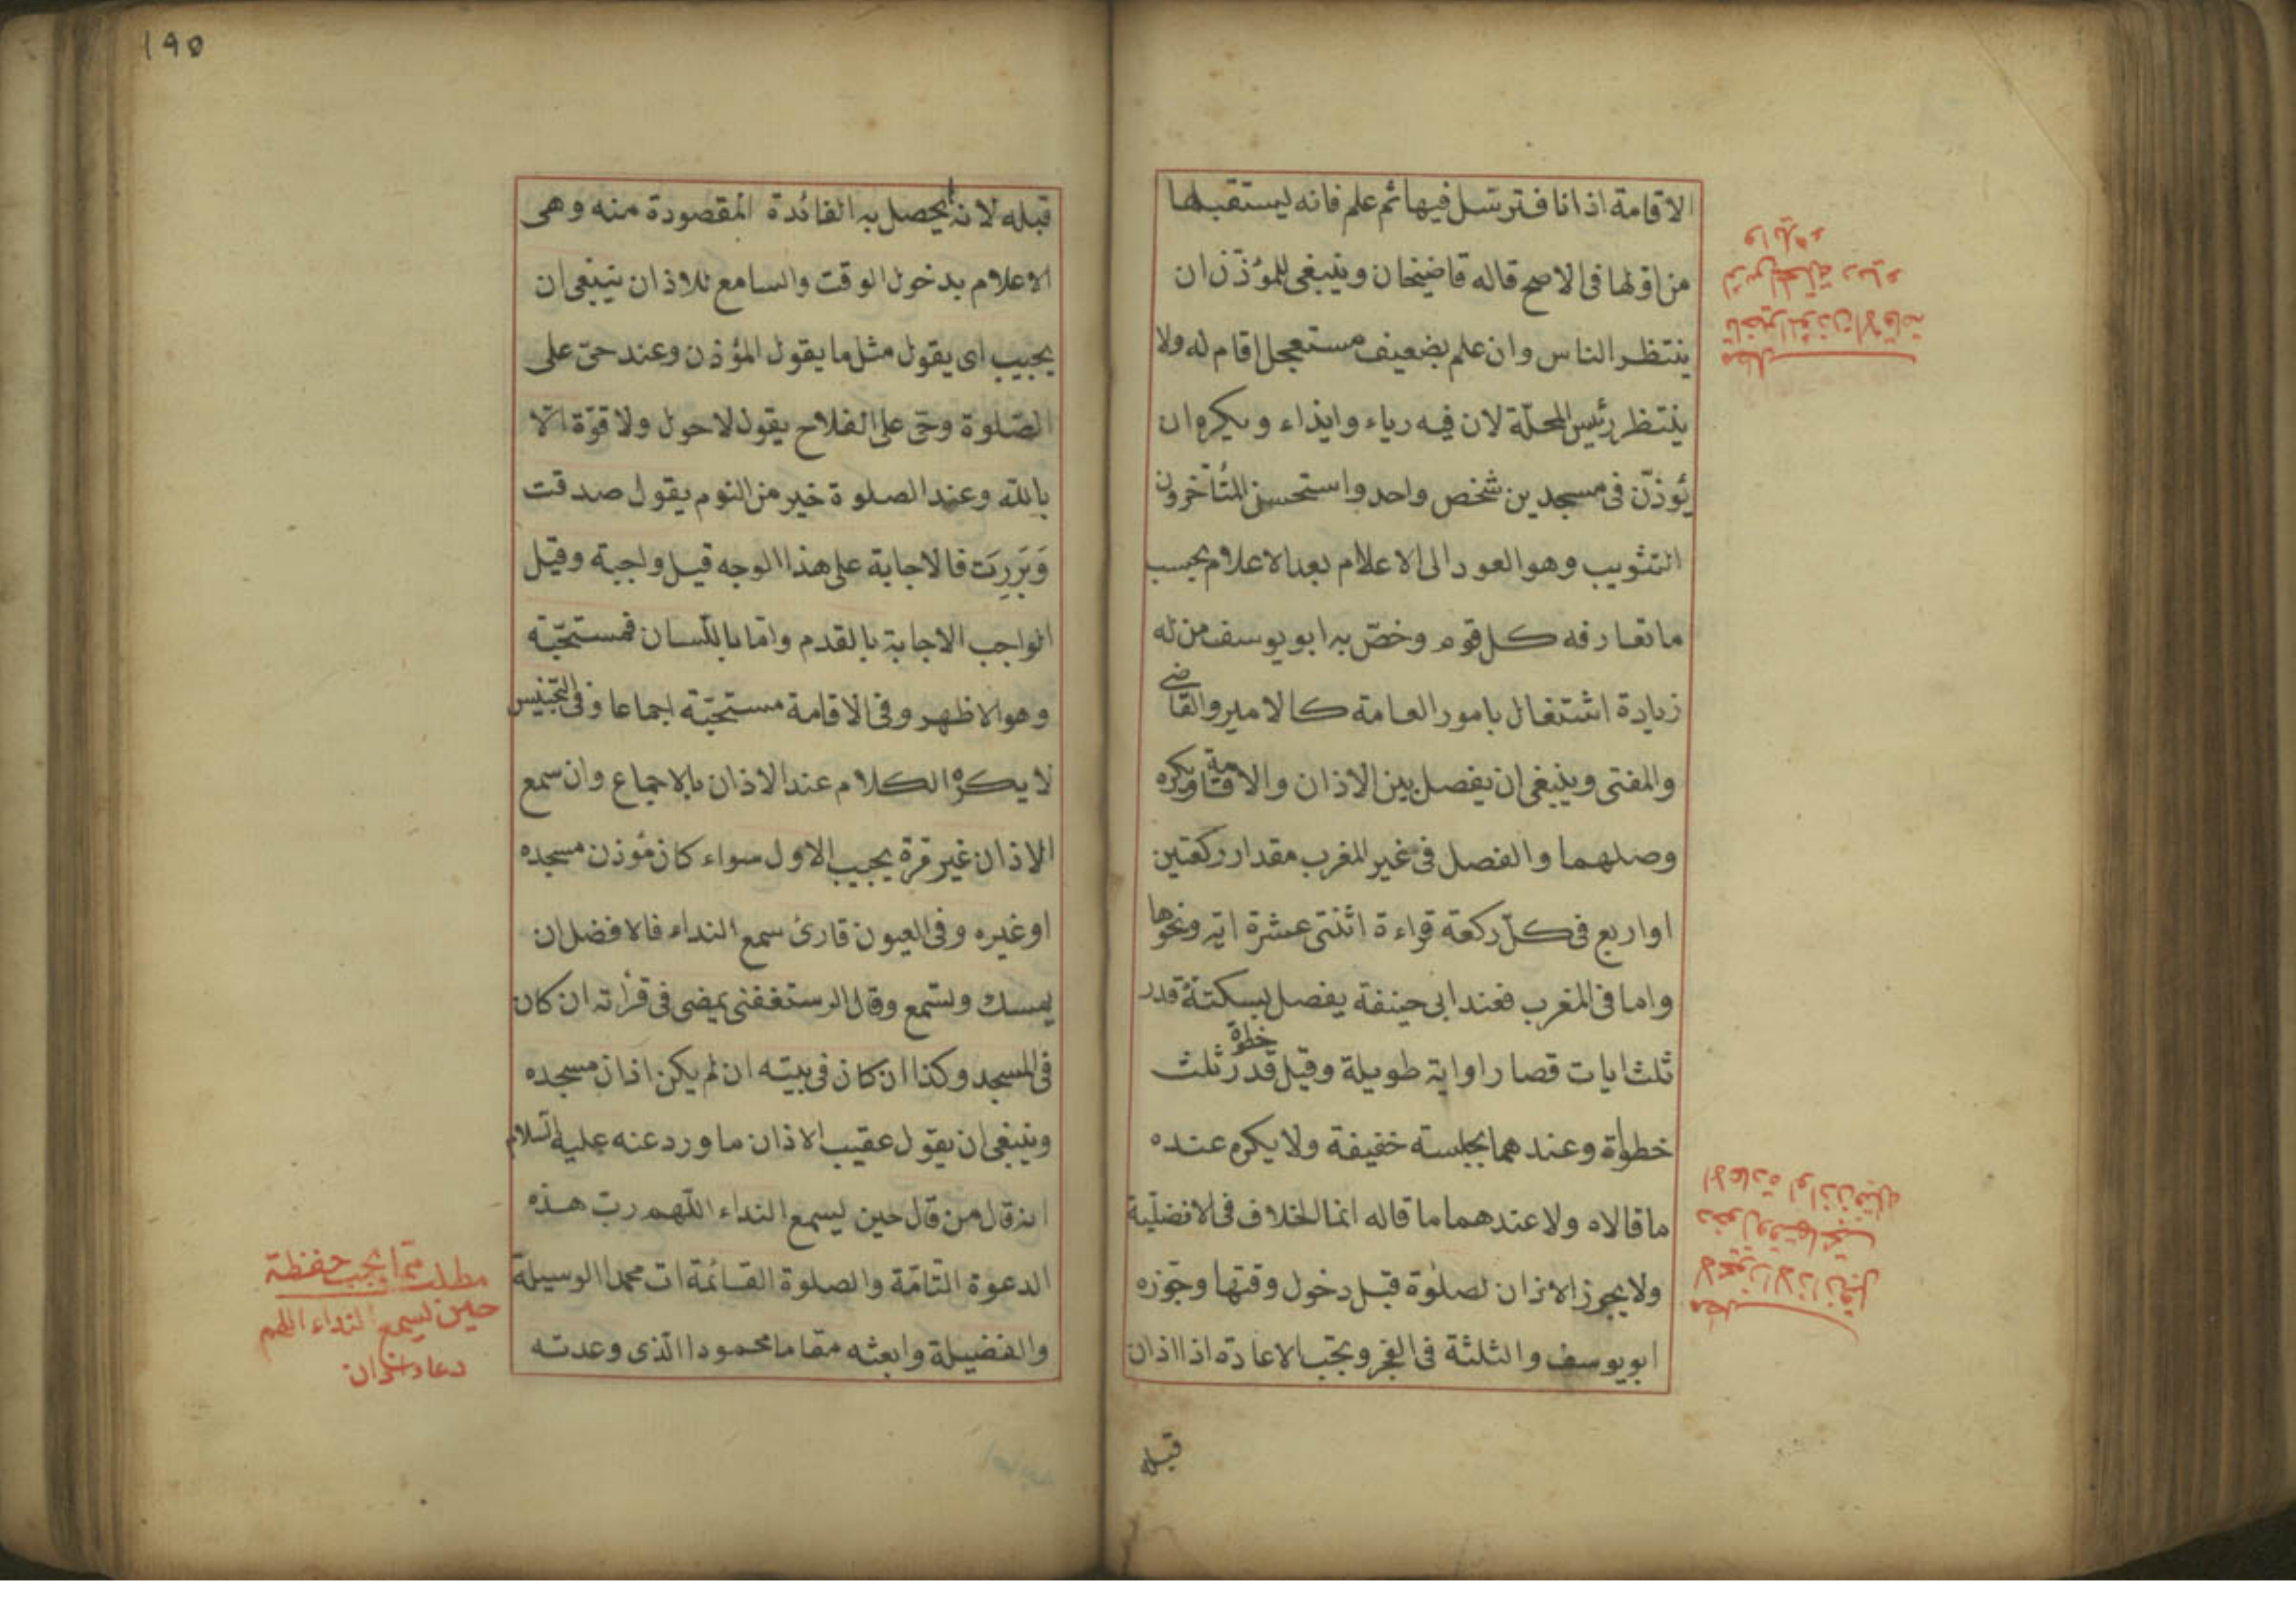 الاقامة اذانا فترسل فيها ثم علم فانه يستقبلها
من اولها فى الاصح قاله قاضيخان وينبغى للمؤذن ان
ينتظر الناس وان علم بضعيف مستعجل اقام له ولا
ينتظر رئيس المحلّة لان فيه رياء وايذاء ويكره ان
يؤذّن فى مسجدين شخص واحد واستحسن المتأخرون
التثويب وهو العود الى الاعلام بعد الاعلام بحسب
ما تعارفه كل قوم وخصّ به ابو يوسف من له
زيادة اشتغال بامور العامة كالامير والقاضى
والمفتى وينبغى ان يفصل بين الاذان والاقامة ويكره
وصلهما والفصل فى غير المغرب مقدار ركعتين
او اربع فى كلّ ركعة قراءة اثنتى عشرة اية ونحوها
واما فى المغرب فعند ابى حنيفة يفصل بسكتة قدر
ثلث ايات قصار او اية طويلة وقيل قدر ثلث
خطوة
خطواة وعندهما بجلسته خفيفة ولا يكره عنده
ما قالاه ولا عندهما ما قاله انما الخلاف فى الافضلّية
ولا يجوز الاذان لصلوة قبل دخول وقتها وجوّزه
ابو يوسف والثلثة فى الفجر ويجب الاعادة اذا اذان
قبله
تأخير المؤذن الاقامة
لا يجوز الاذان قبل
دخول وقتها فيجب
الاعادة لو اذن قبله
١٩٥
قبله لانه لا يحصل به الفائدة المقصودة منه وهى
الاعلام بدخول الوقت والسامع للاذان ينبغى ان
يجيب اى يقول مثل ما يقول المؤذن وعند حىّ على
الصّلوة وحىّ على الفلاح يقول لا حول ولا قوّة الّا
بالله وعند الصلوة خير من النوم يقول صدقت
وَبَرِرَت فالاجابة على هذا الوجه قيل واجبة وقيل
الواجب الاجابة بالقدم وامّا باللّسان فمستحبّة
وهو الاظهر وفى الاقامة مستحبّة اجماعا وفى التجنيس
لا يكره الكلام عند الاذان بالاجماع وان سمع
الاذان غير مرة يجيب الاول سواء كان مؤذن مسجده
او غيره وفى العيون قارئ سمع النداء فالافضل ان
يمسك ويستمع وقال الرستغفنى يمضى فى قرأته ان كان
فى المسجد وكذا ان كان فى بيته ان لم يكن اذان مسجده
وينبغى ان يقول عقيب الاذان ما ورد عنه عليه السلام
انه قال من قال حين يسمع النداء اللّهم ربّ هذه
الدعوة التّامّة والصلوة القائمة ات محمدا الوسيلة
والفضيلة وابعثه مقاما محمودا الّذى وعدته
مطلب ممّا يجب حفظة
حين يسمع النداء اللهم